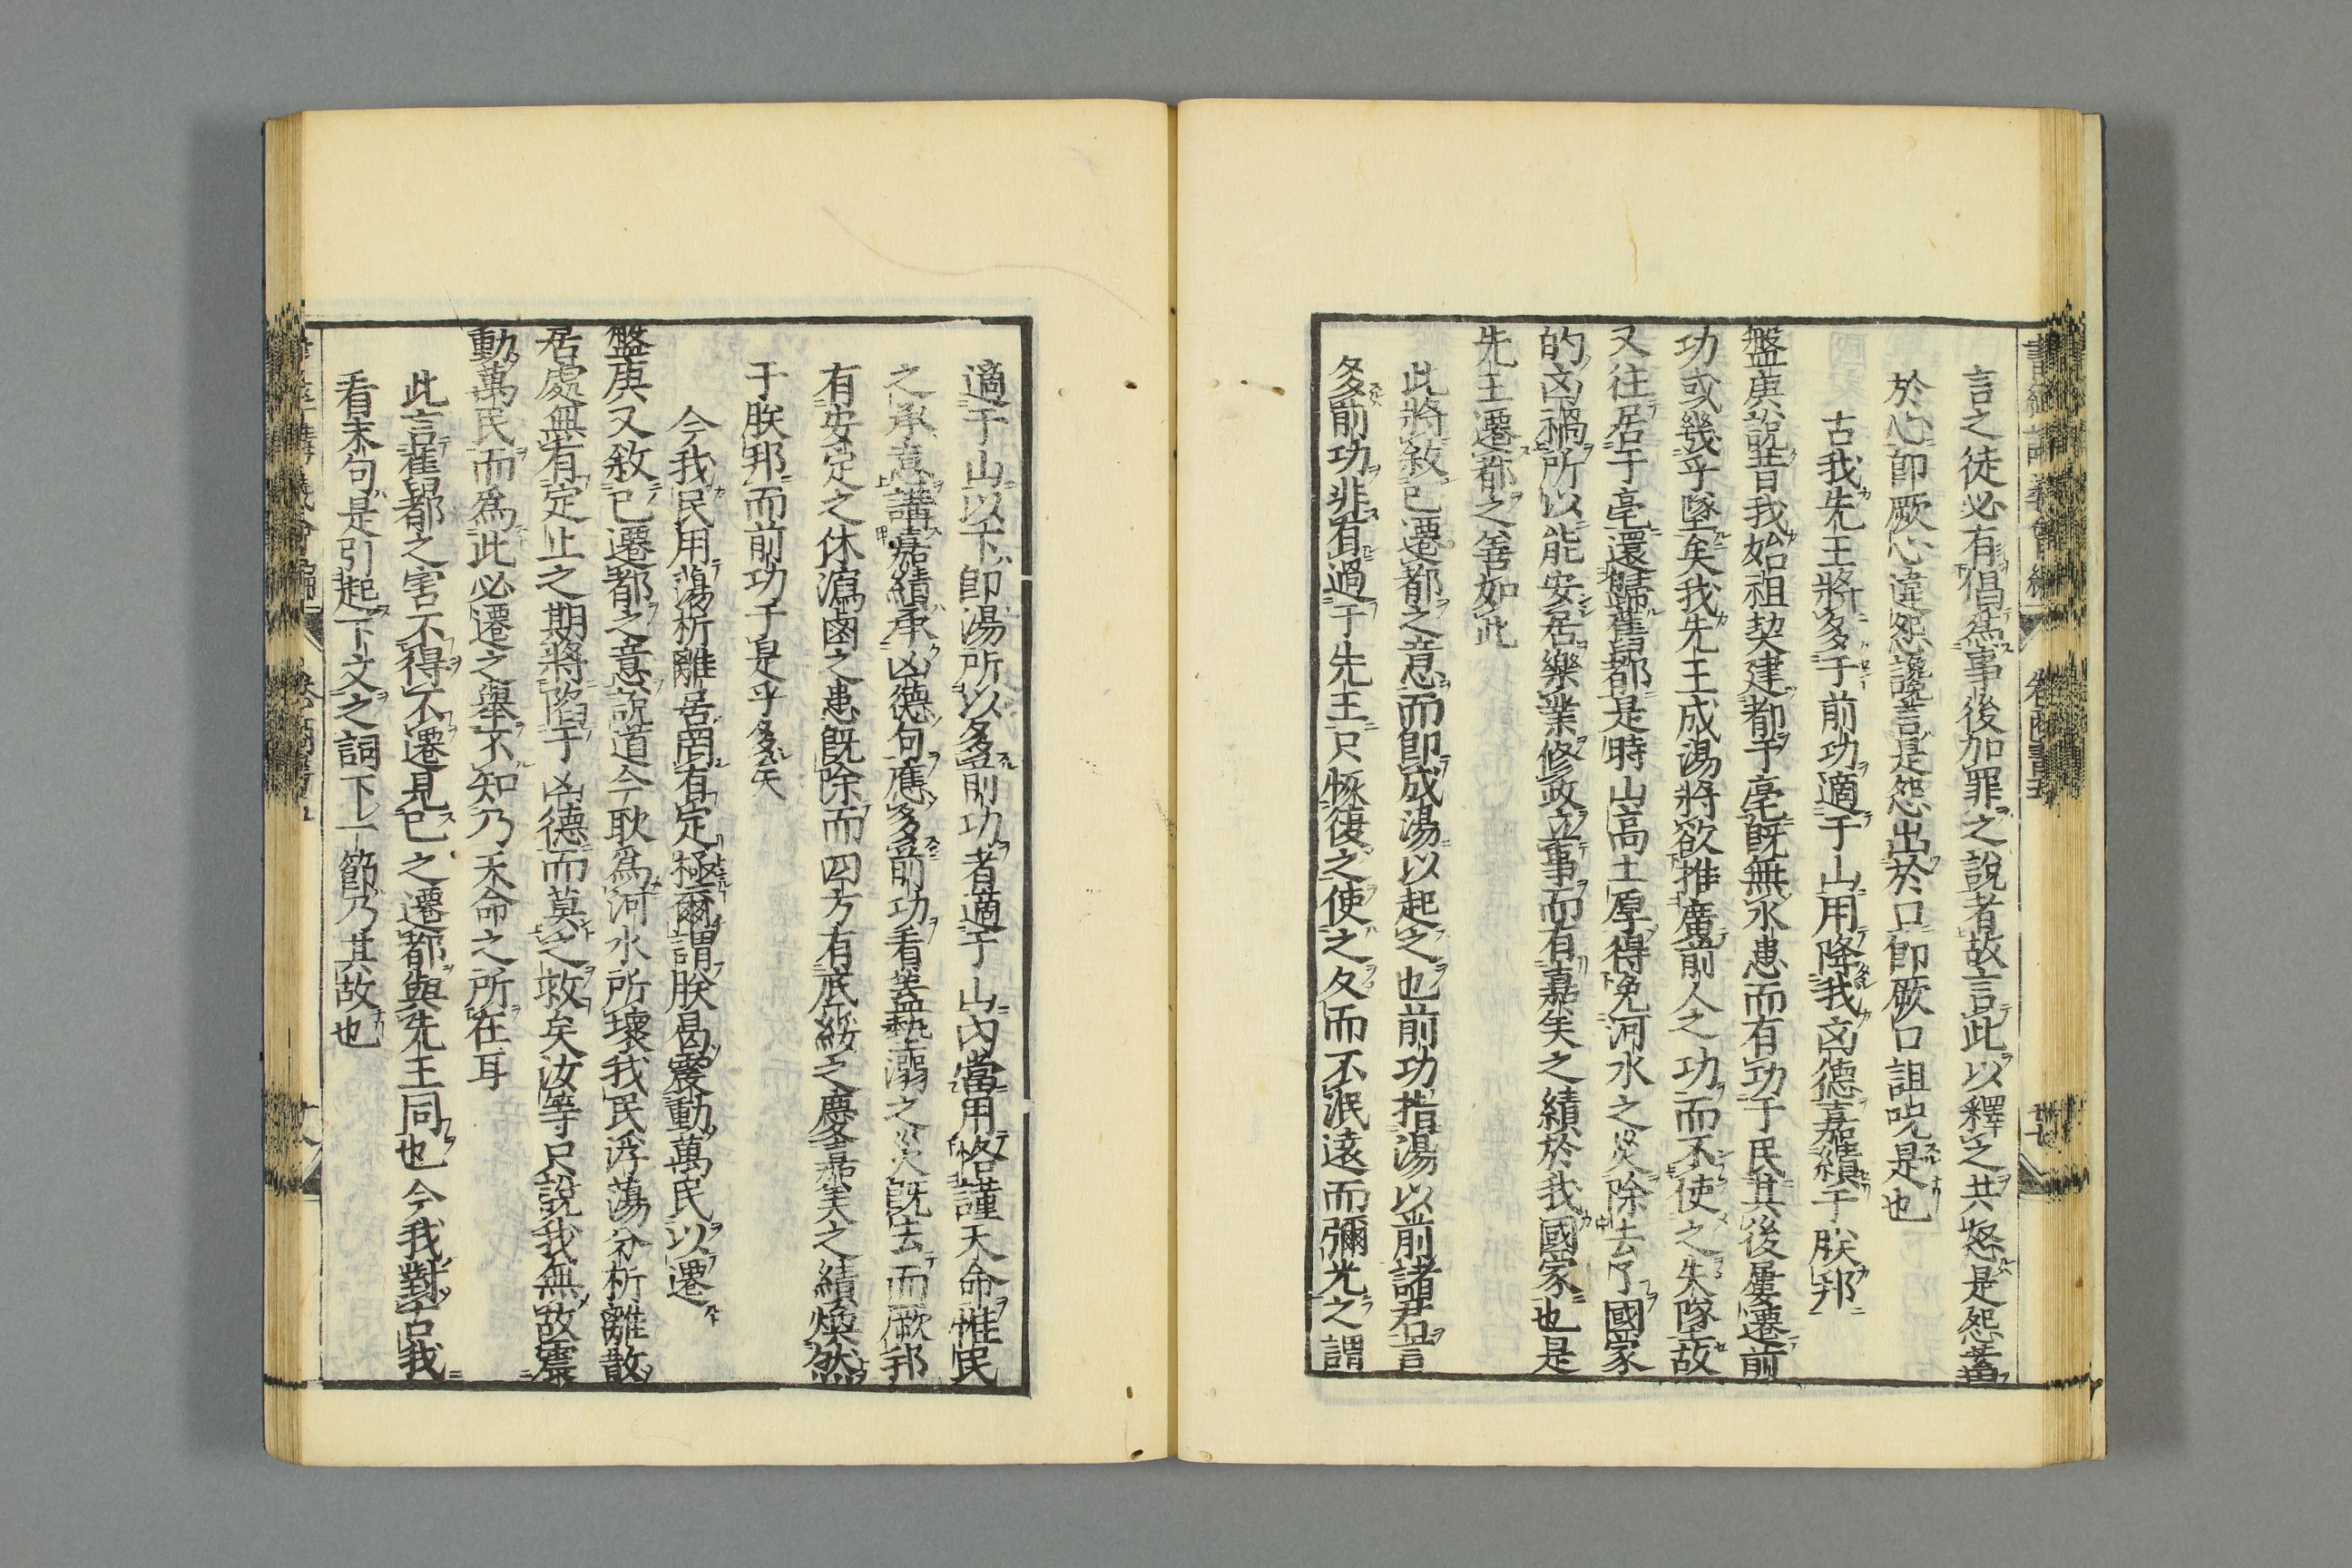 言之徒必有倡爲事後加罪之說者故言此以釋之共怒是怨蓄
於心卽厥心違怨讒言是怨出於口卽厥口詛呪是也
古我先王將多于前功適于山用降我凶德嘉績于朕邦
盤庚說昔我始祖契建都于亳既無水患而有功于民其後屢遷前
功或幾乎墜矣我先王成湯將欲推廣前人之功而不使之失墜故
又往居于亳還歸舊都是時山高土厚得免河水之災除去了國家
的凶禍所以能安居樂業修政立事而有嘉美之績於我國家也是
先王遷都之善如此
此將敘己遷都之意而卽成湯以起之也前功指湯以前諸君言
多前功非有過于先王只恢復之使之久而不泯遠而彌光之謂
適于山以下卽湯所以多前功者適于山內當用恪謹天命惟民
之承意講嘉績承凶德句應多前功看蓋墊溺之災既去而厥邦
有安定之休瀉鹵之患既除而四方有厎綏之慶嘉美之績煥然
于朕邦而前功于是乎多矣
今我民用蕩析離居罔有定極爾謂朕曷震動萬民以遷
盤庚又敘己遷都之意說道今耿爲河水所壞我民浮蕩分析離散
居處無有定止之期將陷于凶德而莫之救矣汝等只說我無故震
動萬民而爲此必遷之舉不知乃天命之所在耳
此言舊都之害不得不遷見己之遷都與先王同也今我對古我
看末句是引起下文之詞下一節乃其故也